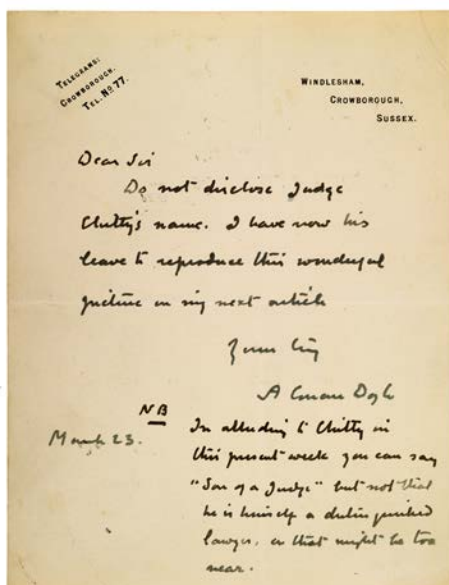 TELEGRAMS:
CROWBOROUGH.
TEL. No 77.
WINDLESHAM,
CROWBOROUGH,
SUSSEX.
Dear Sir
Do not disclose Judge
Chitty's name. I have now his
leave to reproduce this wonderful
picture in my next article
Yours
A Conan Doyle
NB
March 23.
In alluding to Chitty in
this present week you can say
"Son of a Judge" but not that
he is himself a distinguished
lawyer, or that might be too
near.